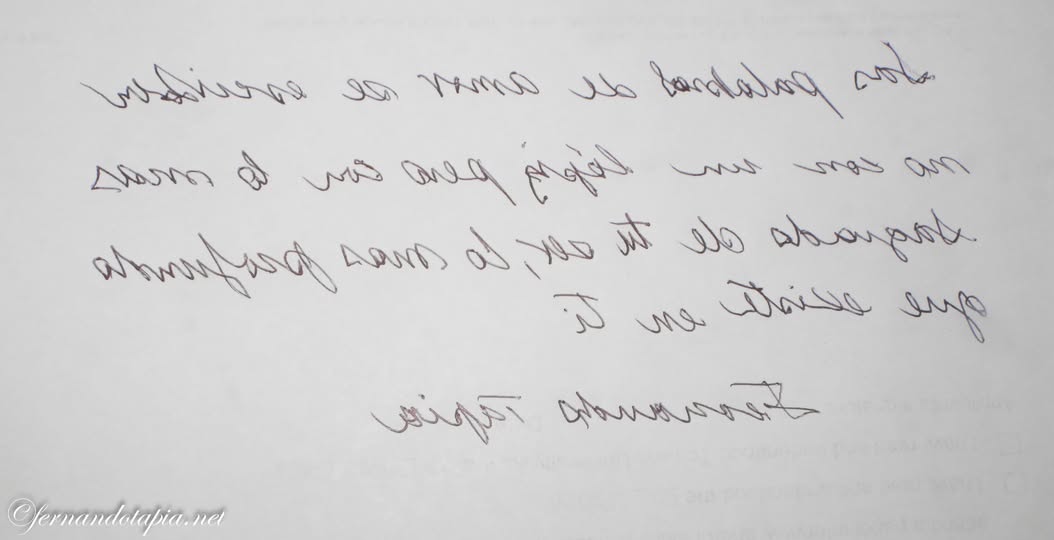 Las palabras de amor se escriben
no con un lápiz, pero con lo mas
sagrado de tu ser, lo mas profundo
que existe en ti
Fernando Tapia
©fernandotapia.net